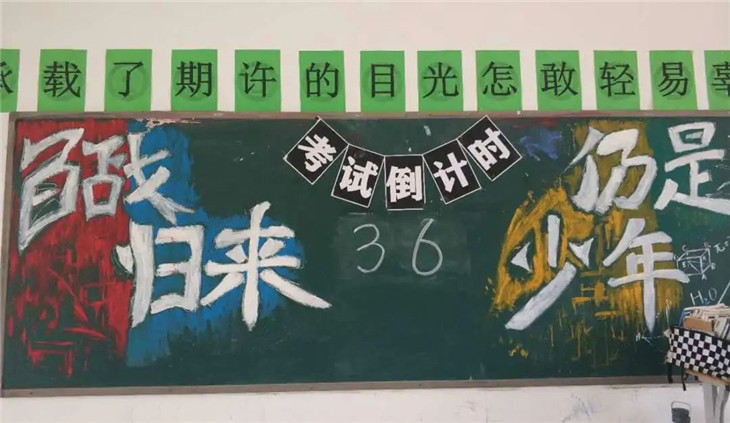 承载了期许的目光怎敢轻易辜
百战
归来
考试倒计时
36
仍是
少年
H₂O